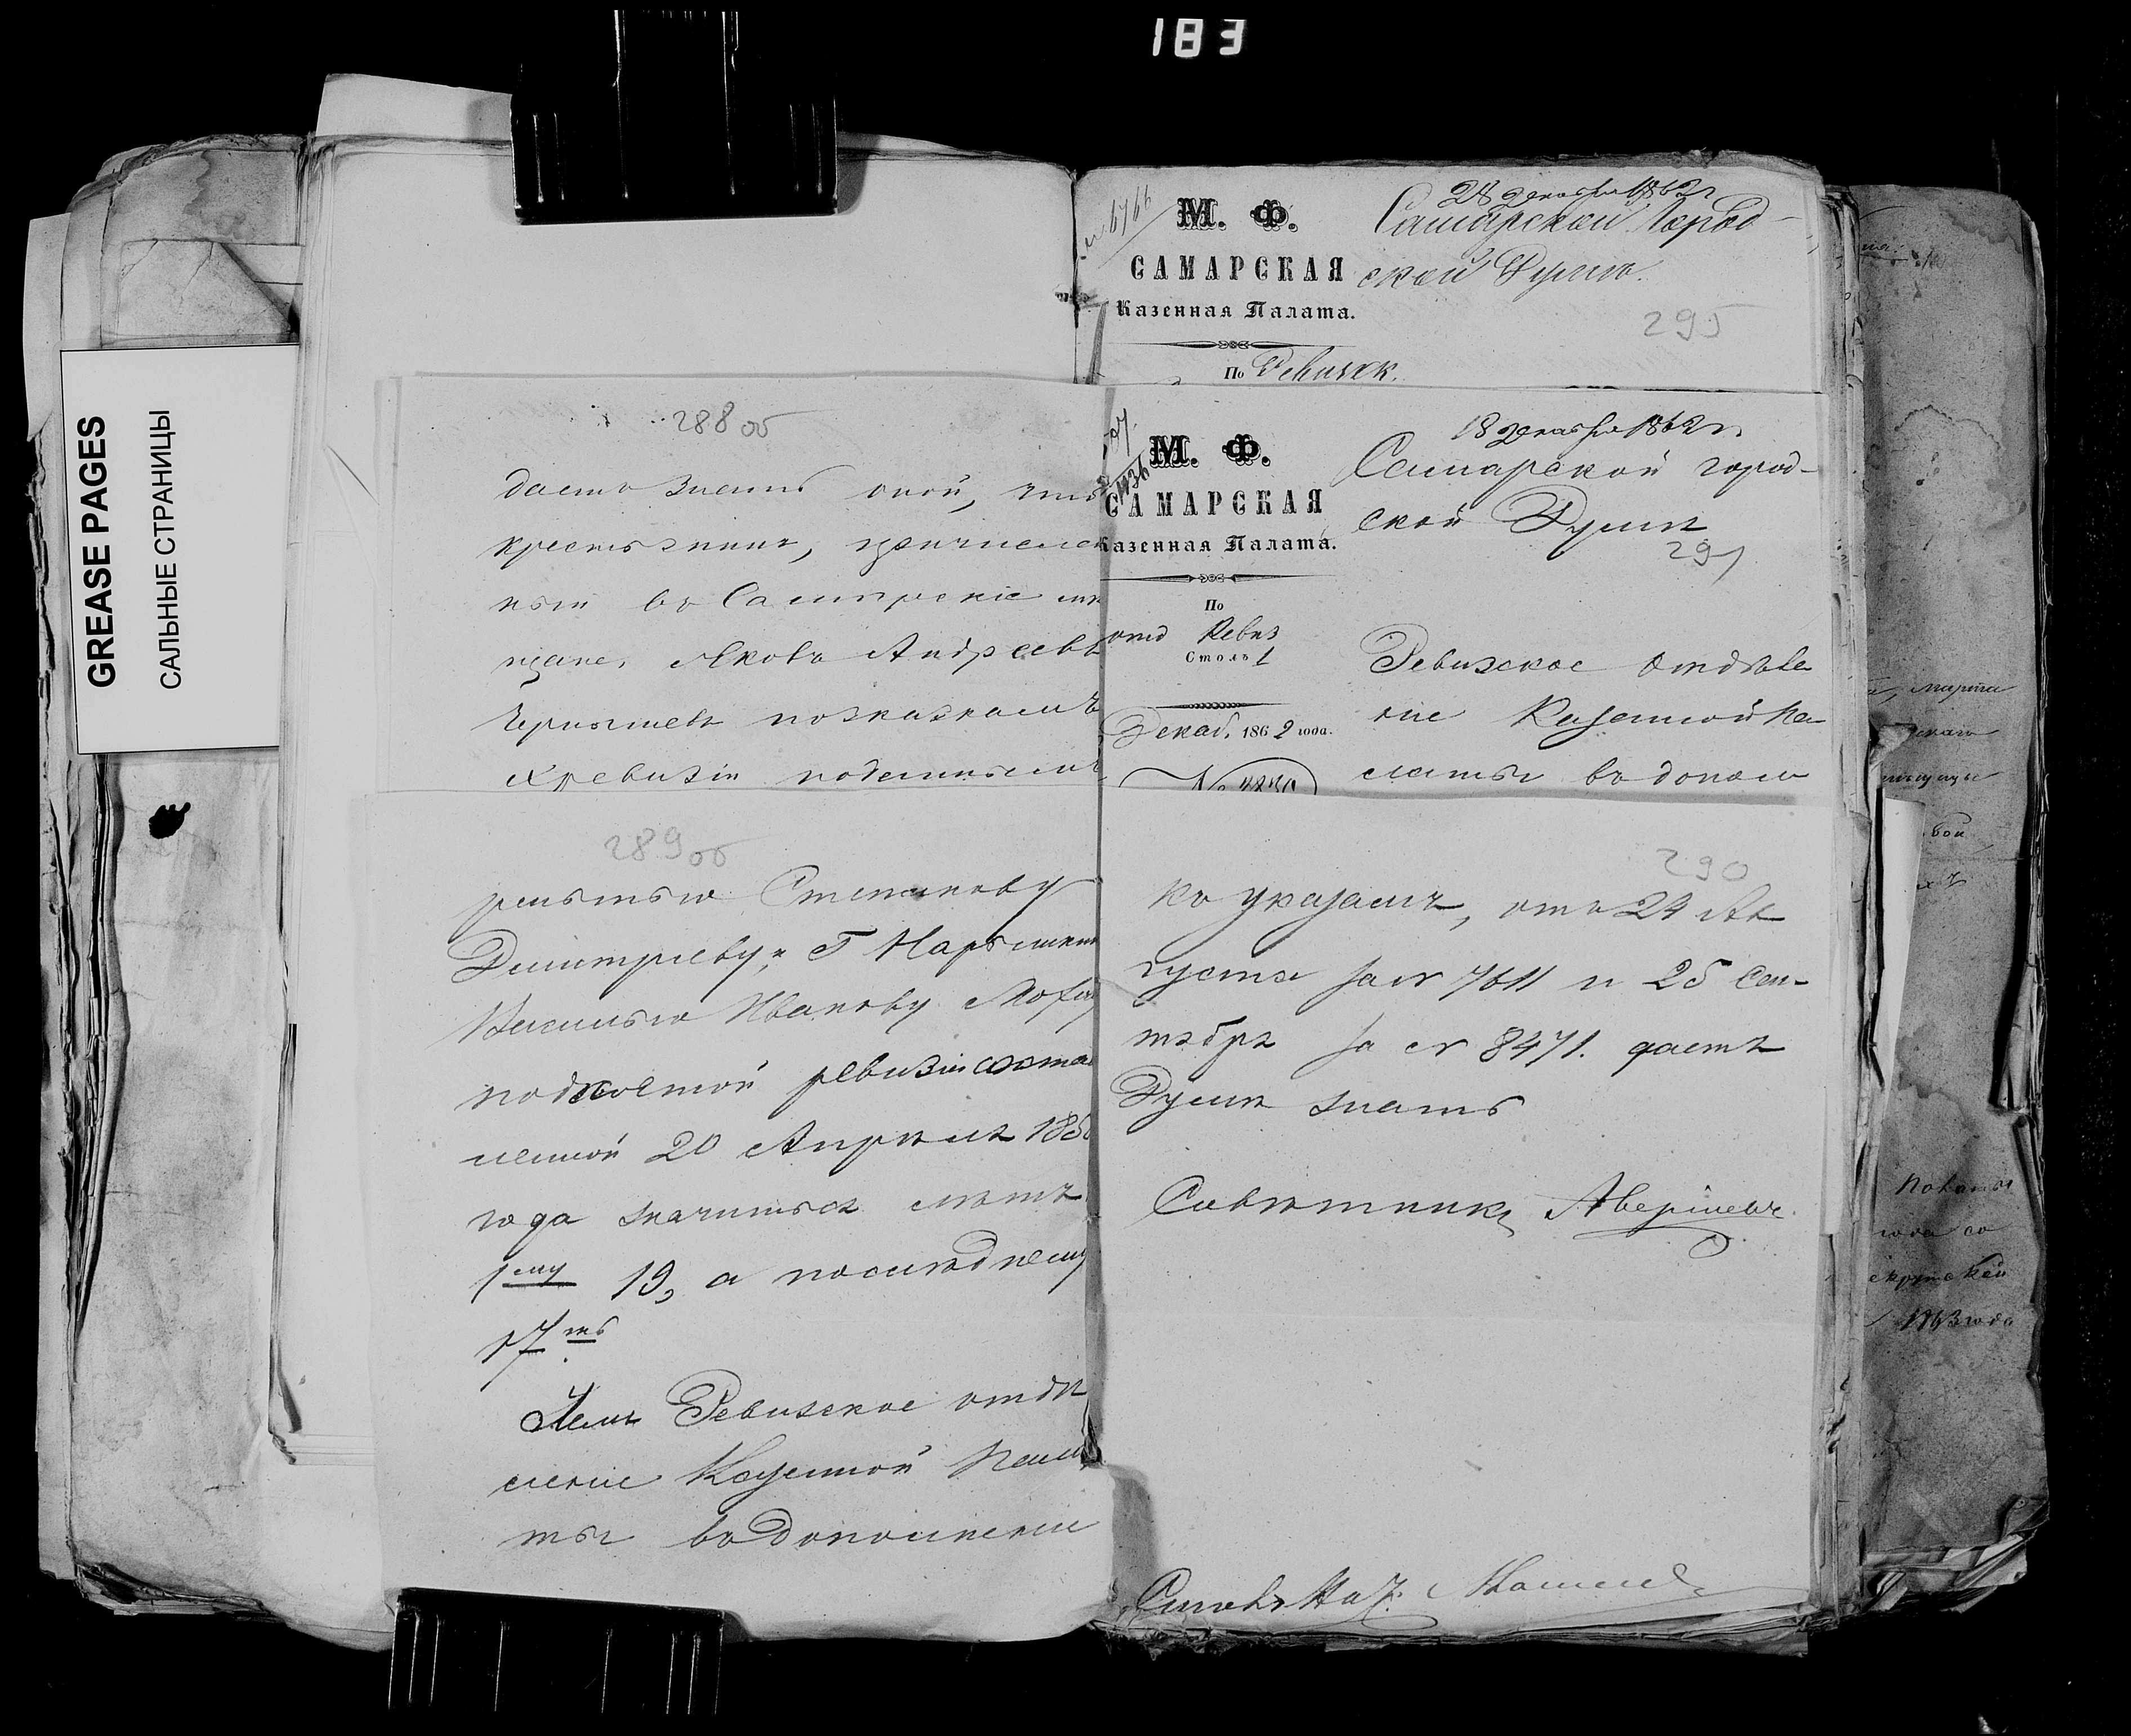 183
GREASE PAGES
САЛЬНЫЕ СТРАНИЦЫ
М. Ф.
САМАРСКАЯ
Казенная Палата.
По Ревизск.
28 Декабря 1862 г
Самарской Город-
ской Думѣ.
295
288 об
даетъ знать оной, что
крестьянинъ, причислен
ный въ Самарскіе мѣ
щане, Яковъ Андреевъ
Чернышевъ по сказкамъ
Х ревизіи поданнымъ
М. Ф.
САМАРСКАЯ
Казенная Палата.
По
отд Ревиз
Столъ 1
Декаб. 1862 года.
18 Декабря 1862 г.
Самарской город-
ской Думѣ
291
Ревизское Отдѣле
ніе Казенной Па-
латы въ допол
289 об
Степанову
Дмитріеву, Г
Василью Иванову
ревизіи состав
ленной 20 Апрѣля 185
года значится лѣтъ
1ему 19, а послѣднему
17ть
Ревизское отдѣ
леніе Казенной Пала
ты въ дополненіе
290
къ указамъ, отъ 24 Ав
густа за № 7611 и 25 Сен-
тября за № 8471. даетъ
Думѣ знать
Совѣтникъ Аверкіевъ
Столов. Нач.
марта
1863 года